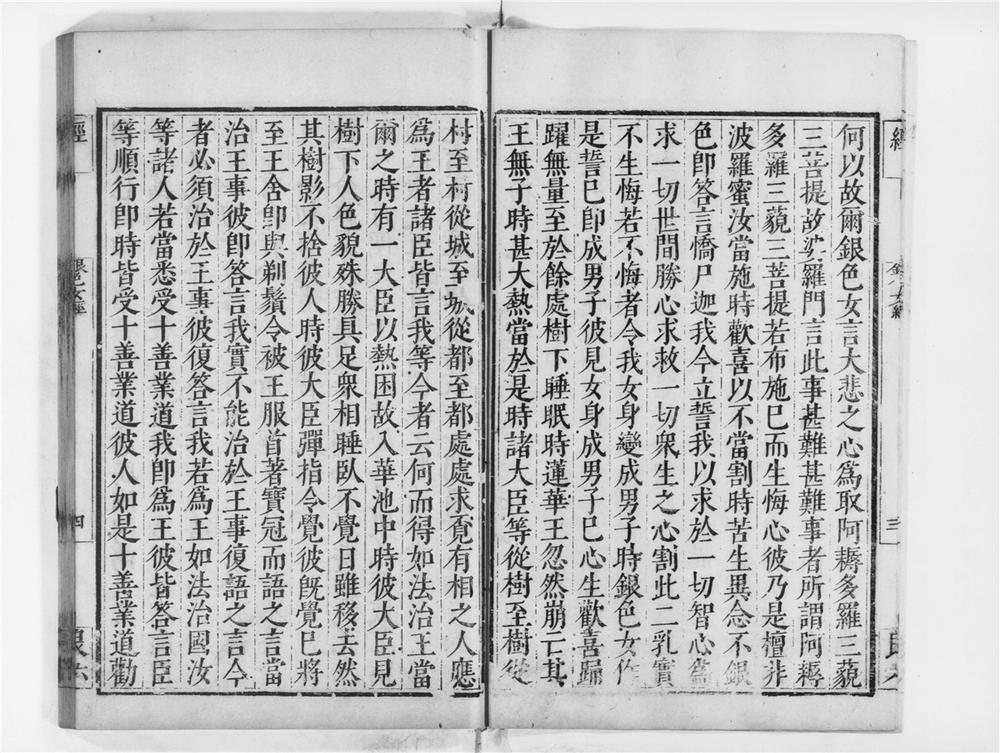 何以故爾銀色女言大悲之心為取阿耨多羅三藐
三菩提故婆羅門言此事甚難甚難事者所謂阿耨
多羅三藐三菩提若布施已而生悔心彼乃是檀非
波羅蜜汝當施時歡喜以不當割時苦生異念不銀
色即答言憍尸迦我今立誓我以求於一切智心為
求一切世間勝心求救一切眾生之心割此二乳實
不生悔若不悔者令我女身變成男子時銀色女作
是誓已即成男子彼見女身成男子已心生歡喜踊
躍無量至於餘處樹下睡眠時蓮華王忽然崩亡其
王無子時甚大熱當於是時諸大臣等從樹至樹從
村至村從城至城從都至都處處求覓有相之人應
為王者諸臣皆言我等今者云何而得如法治王當
爾之時有一大臣以熱困故入華池中時彼大臣見
樹下人色貌殊勝具足眾相睡臥不覺日雖移去然
其樹影不捨彼人時彼大臣彈指令覺彼既覺已將
至王舍即與剃鬚令被王服首著寶冠而語之言當
治王事彼即答言我實不能治於王事復語之言今
者必須治於王事彼復答言我若為王如法治國汝
等諸人若當悉受十善業道我即為王彼皆答言臣
等順行即時皆受十善業道彼人如是十善業道勸
經
銀色女經
四
經
銀色女經
三